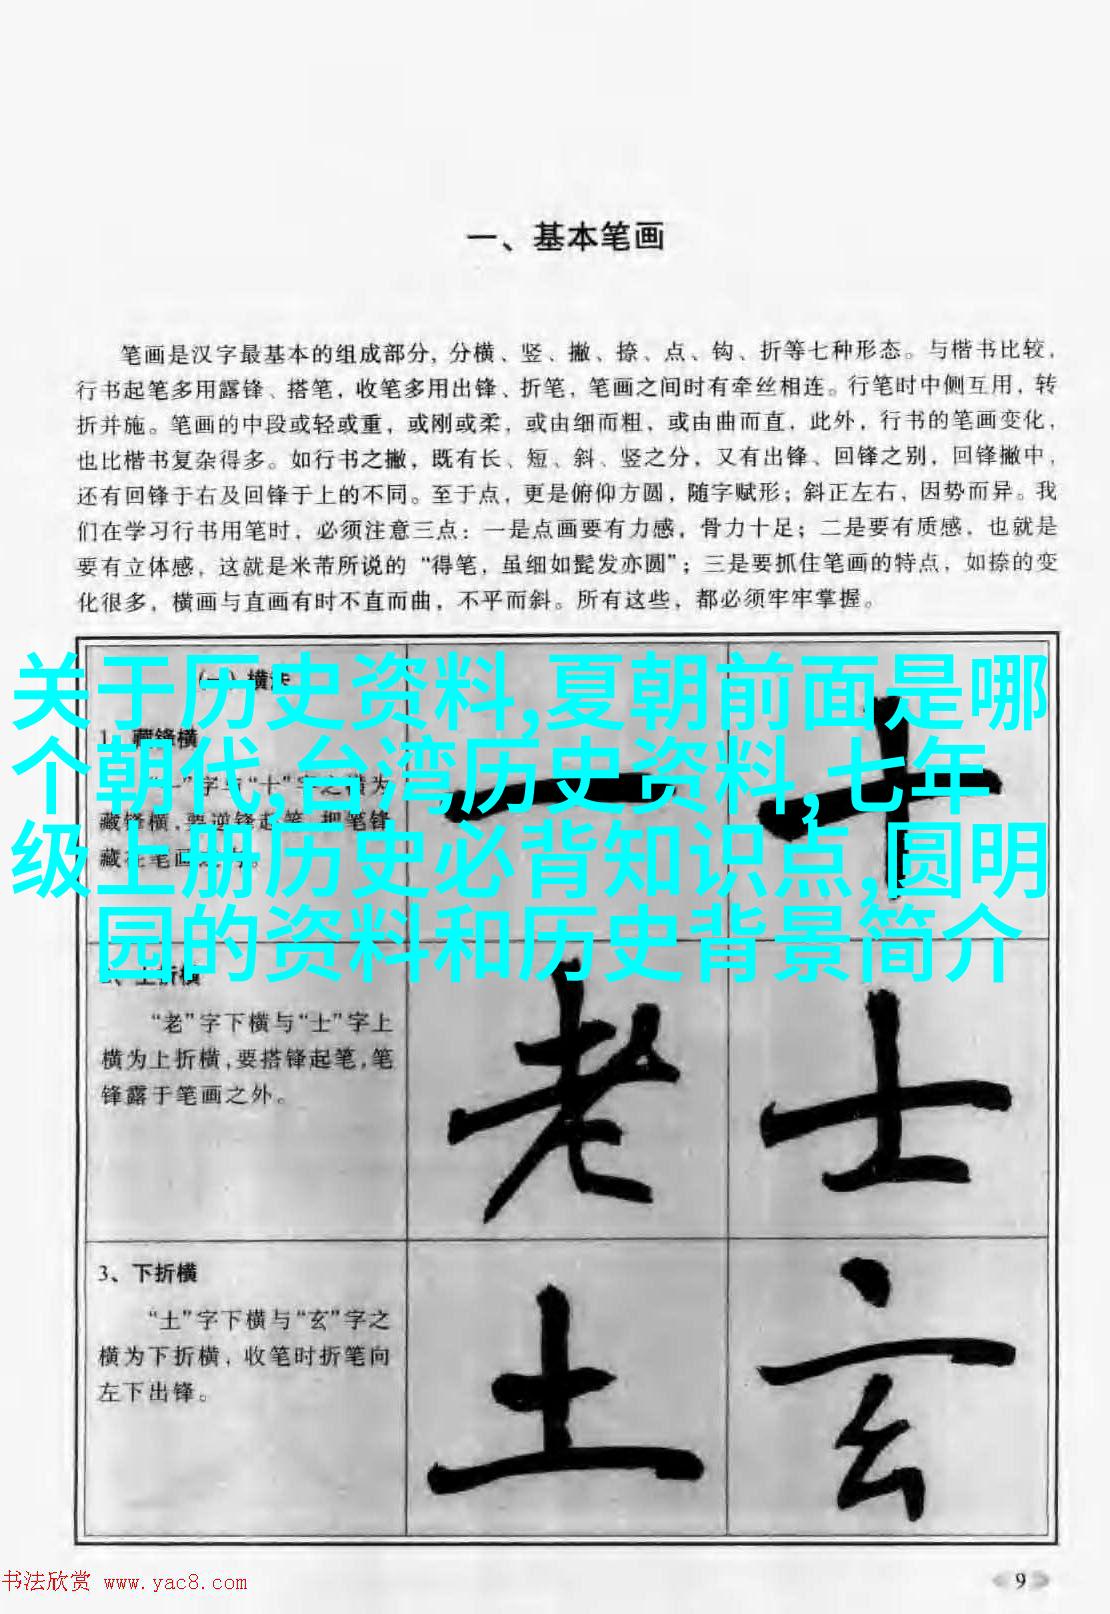 一、基本笔画
笔画是汉字最基本的组成部分，分横、竖、撇、捺、点、钩、折等七种形态。与楷书比较，
行书起笔多用露锋、搭笔，收笔多用出锋、折笔，笔画之间时有牵丝相连。行笔时中侧互用，转
折并施。笔画的中段或轻或重，或刚或柔，或由细而粗，或由曲而直，此外，行书的笔画变化，
也比楷书复杂得多。如行书之撇，既有长、短、斜、竖之分，又有出锋、回锋之别，回锋撇中，
还有回锋于右及回锋于上的不同。至于点，更是俯仰方圆，随字赋形；斜正左右、因势而异。我
们在学习行书用笔时，必须注意三点：一是点画要有力感，骨力十足；二是要有质感，也就是
要有立体感，这就是米芾所说的“得笔，虽细如髭发亦圆”；三是要抓住笔画的特点，如捺的变
化很多，横画与直画有时不直而曲，不平而斜。所有这些，都必须牢牢掌握。
关于历史资料,夏朝前面是哪
个朝代,台湾历史资料,七年
级上册历史必背知识点,圆明
园的资料和历史背景简介
(一)横法
1、藏锋横
“一”字与“十”字之横为
藏锋横,要逆锋起笔,把笔锋
藏在笔画
一 十
上折横
“老”字下横与“士”字上
横为上折横,要搭锋起笔,笔
锋露于笔画之外。
老 士
3、下折横
“土”字下横与“玄”字之
横为下折横，收笔时折笔向
左下出锋。
土 玄
书法欣赏 www.yac8.com
9